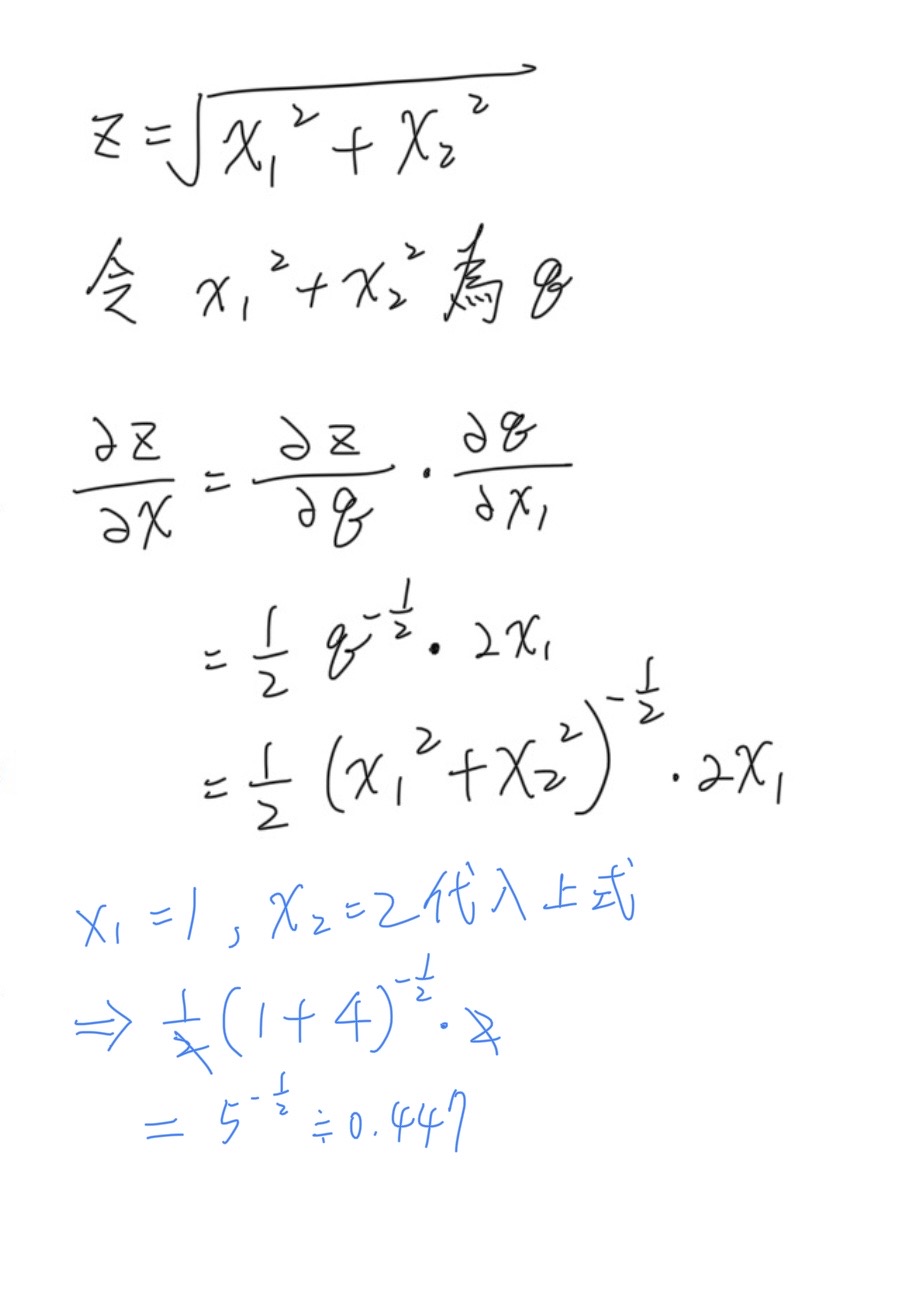 z = √(x₁² + x₂²)
令 x₁² + x₂² 為 q
∂z/∂x = ∂z/∂q · ∂q/∂x₁
= 1/2 q^(-1/2) · 2x₁
= 1/2 (x₁² + x₂²)^(-1/2) · 2x₁
x₁ = 1, x₂ = 2 代入上式
⇒ 1/2 (1+4)^(-1/2) · 2
= 5^(-1/2) ≑ 0.447